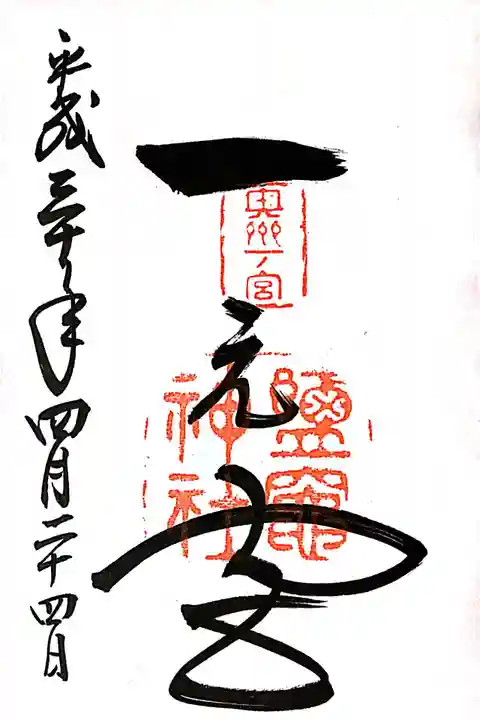 一之宮
奥州一ノ宮
鹽竈
神社
平成三十年四月二十四日